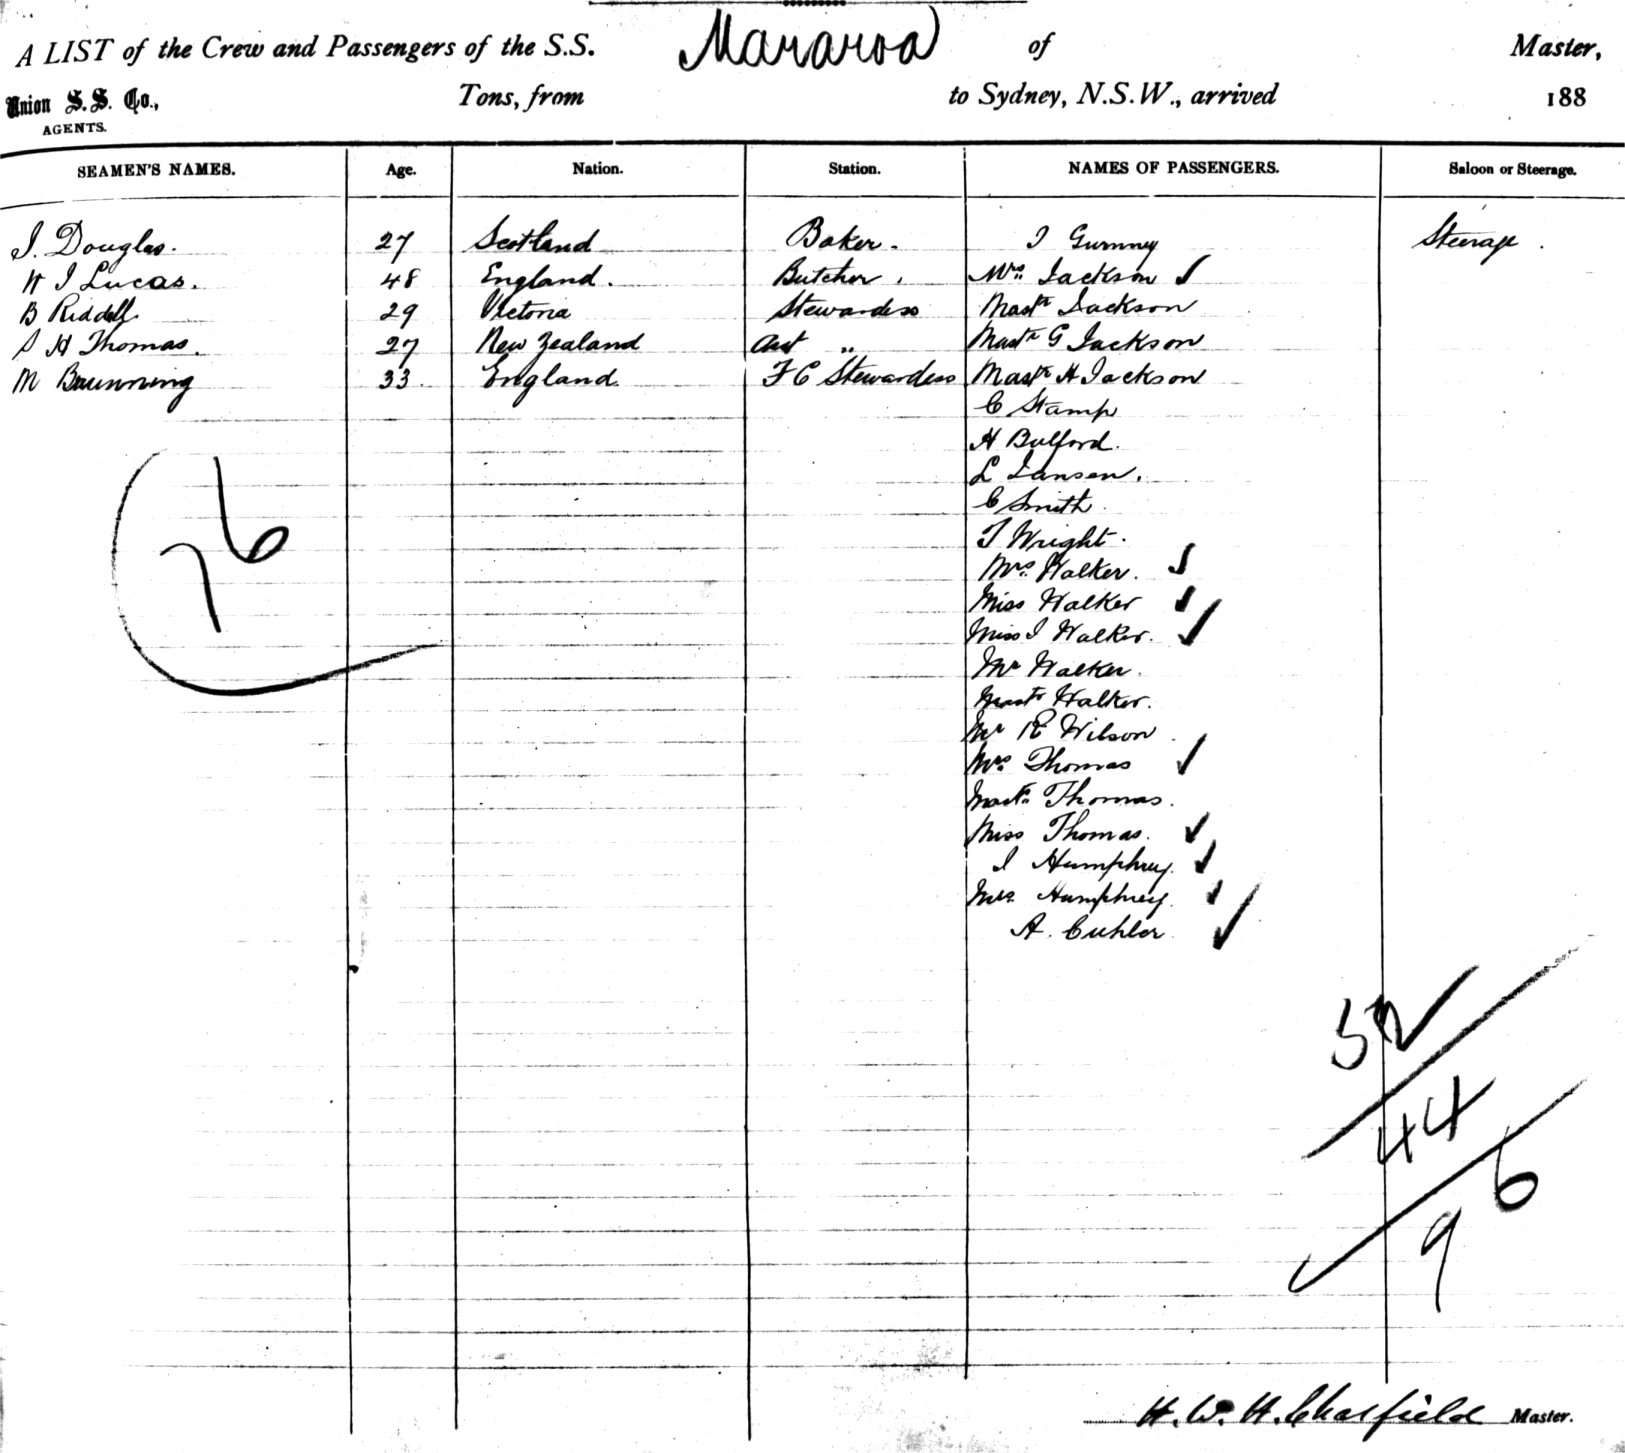 A LIST of the Crew and Passengers of the S.S. Mararoa of Master,
Union S.S. Co., Tons, from to Sydney, N.S.W., arrived 188
AGENTS.
SEAMEN'S NAMES. Age. Nation. Station. NAMES OF PASSENGERS. Saloon or Steerage.
J. Douglas. 27 Scotland Baker. J Gurnney Steerage.
W J Lucas. 48 England. Butcher. Mrs. Jackson ✓
B Riddell 29 Victoria Stewardess Mastr Jackson
S H Thomas. 27 New Zealand Asst „ Mastr G Jackson
M Brunning 33. England. F C Stewardess Mastr H Jackson
C Stamp
H Bulford.
L Jansen.
C Smith.
T Wright.
Mrs. Walker. ✓
Miss Walker ✓
Miss J Walker. ✓
Mr Walker.
Mastr Walker.
Mr R Wilson.
Mrs. Thomas ✓
Mastr. Thomas.
Miss Thomas. ✓
J Humphrey. ✓
Mrs. Humphrey. ✓
A. Cuhler. ✓
76
52
44
96
H. W. H. Chatfield Master.